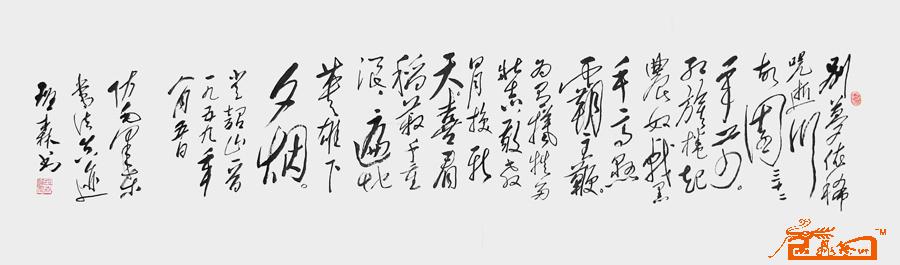 别梦依稀
咒逝川
故園三十二
年前。
红旗捲起
農奴戟黑
手高懸
霸主鞭。
为有犧牲多
壮志敢教
日月换新
天喜看
稻菽千重
浪遍地
英雄下
夕烟。
韶山
一九五九年
月五日
仿毛澤東
書法真迹
森书